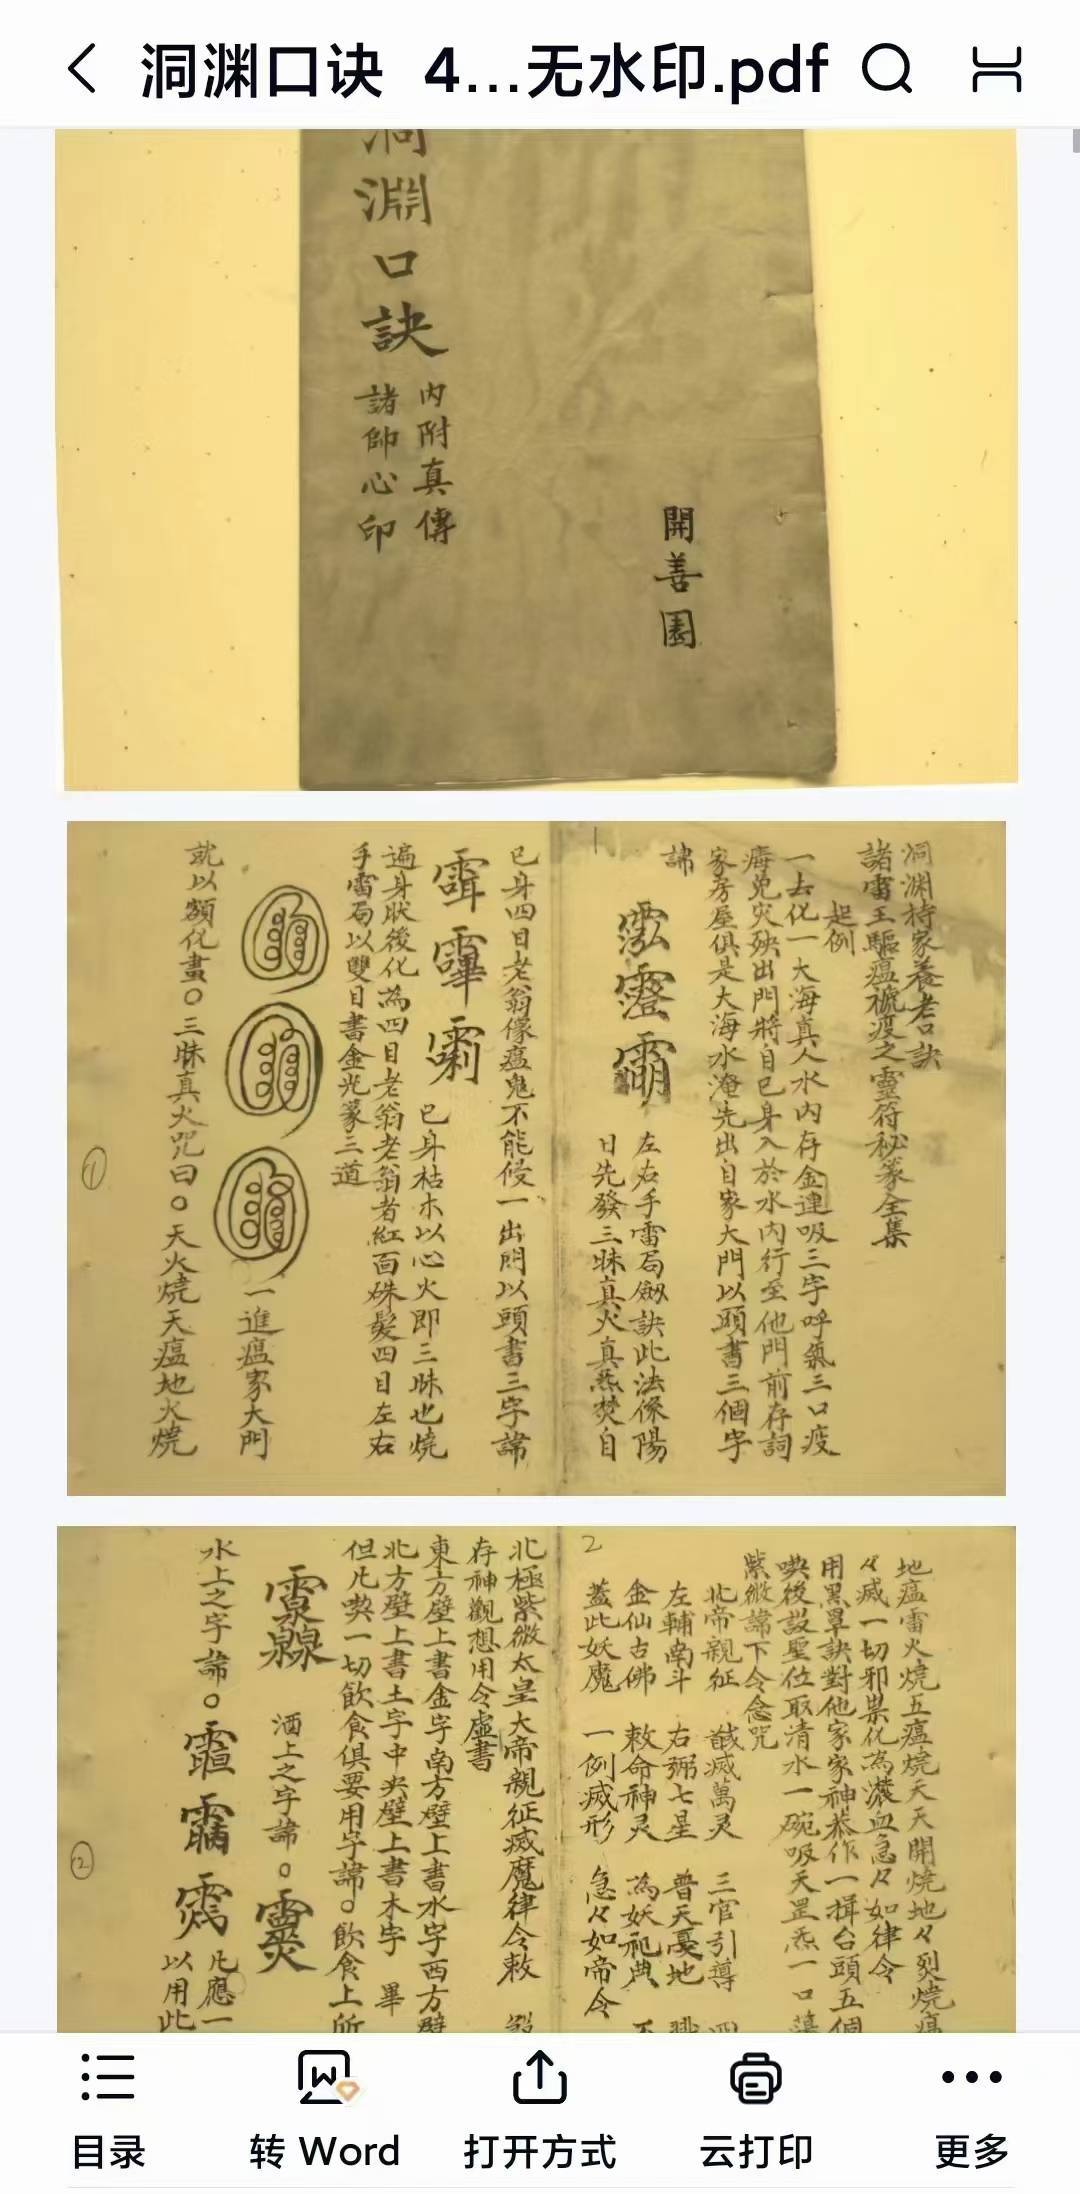 洞渊口诀 4...无水印.pdf
洞
淵口訣
內附真傳
諸帥心印
開善園
1
洞渊持家養老口訣
諸雷王驅瘟禠疫之靈符秘篆全集
起例
一去化一大海真人水内存金連吸三字呼氣三口疫
癘兇灾殃出門將自己身入於水内行至他門前存詞
家房屋俱是大海水淹先出自家大門以頭書三個字
諱
左右手雷局劔訣此法係陽
日先發三昧真火真炁焚自
已身四目老翁像瘟鬼不能侵一出門以頭書三字諱
已身枯木以心火即三昧也燒
遍身狀後化為四目老翁老翁者紅面硃髮四目左右
手雷局以雙目書金光篆三道
一進瘟家大門
就以額化畫○三昧真火咒曰○天火燒天瘟地火燒
①
2
地瘟雷火燒五瘟燒天天開燒地々裂燒瘟
々滅一切邪祟化為濃血急々如律令
用黑罩訣對他家家神恭作一揖台頭五個
喫後設聖位取清水一碗吸天罡炁一口
紫微諱下令念咒
北帝親征 馘滅萬灵 三官引導 四
左輔南斗 右弼七星 普天憂地
金仙古佛 敕命神灵 為妖祀典 不
蓋此妖魔 一例滅形 急々如帝令
北極紫微太皇大帝親征滅魔律令敕
存神觀想用令虛書
東方壁上書金字南方壁上書水字西方壁
北方壁上書土字中央壁上書木字 畢
但凡喫一切飲食俱要用字諱○飲食上所
酒上之字諱○
水上之字諱○
凡應一
以用此
②
目录
转 Word
打开方式
云打印
更多